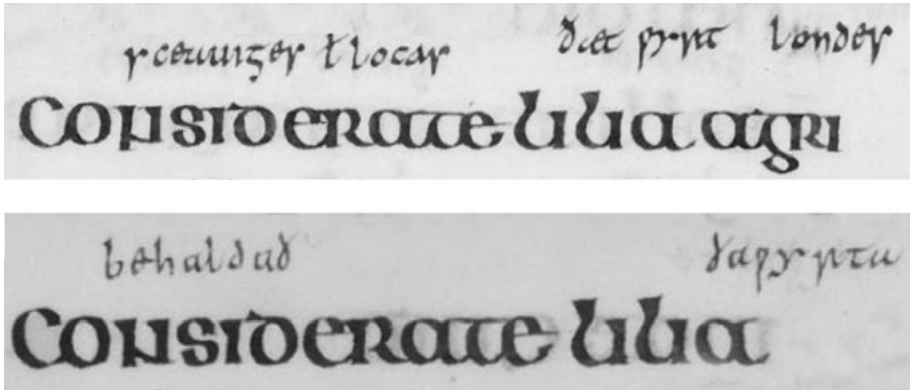 sceauiges ł locas ðæt ƿyrt londes
Considerate lilia agri
behaldað ða ƿyrta
Considerate lilia